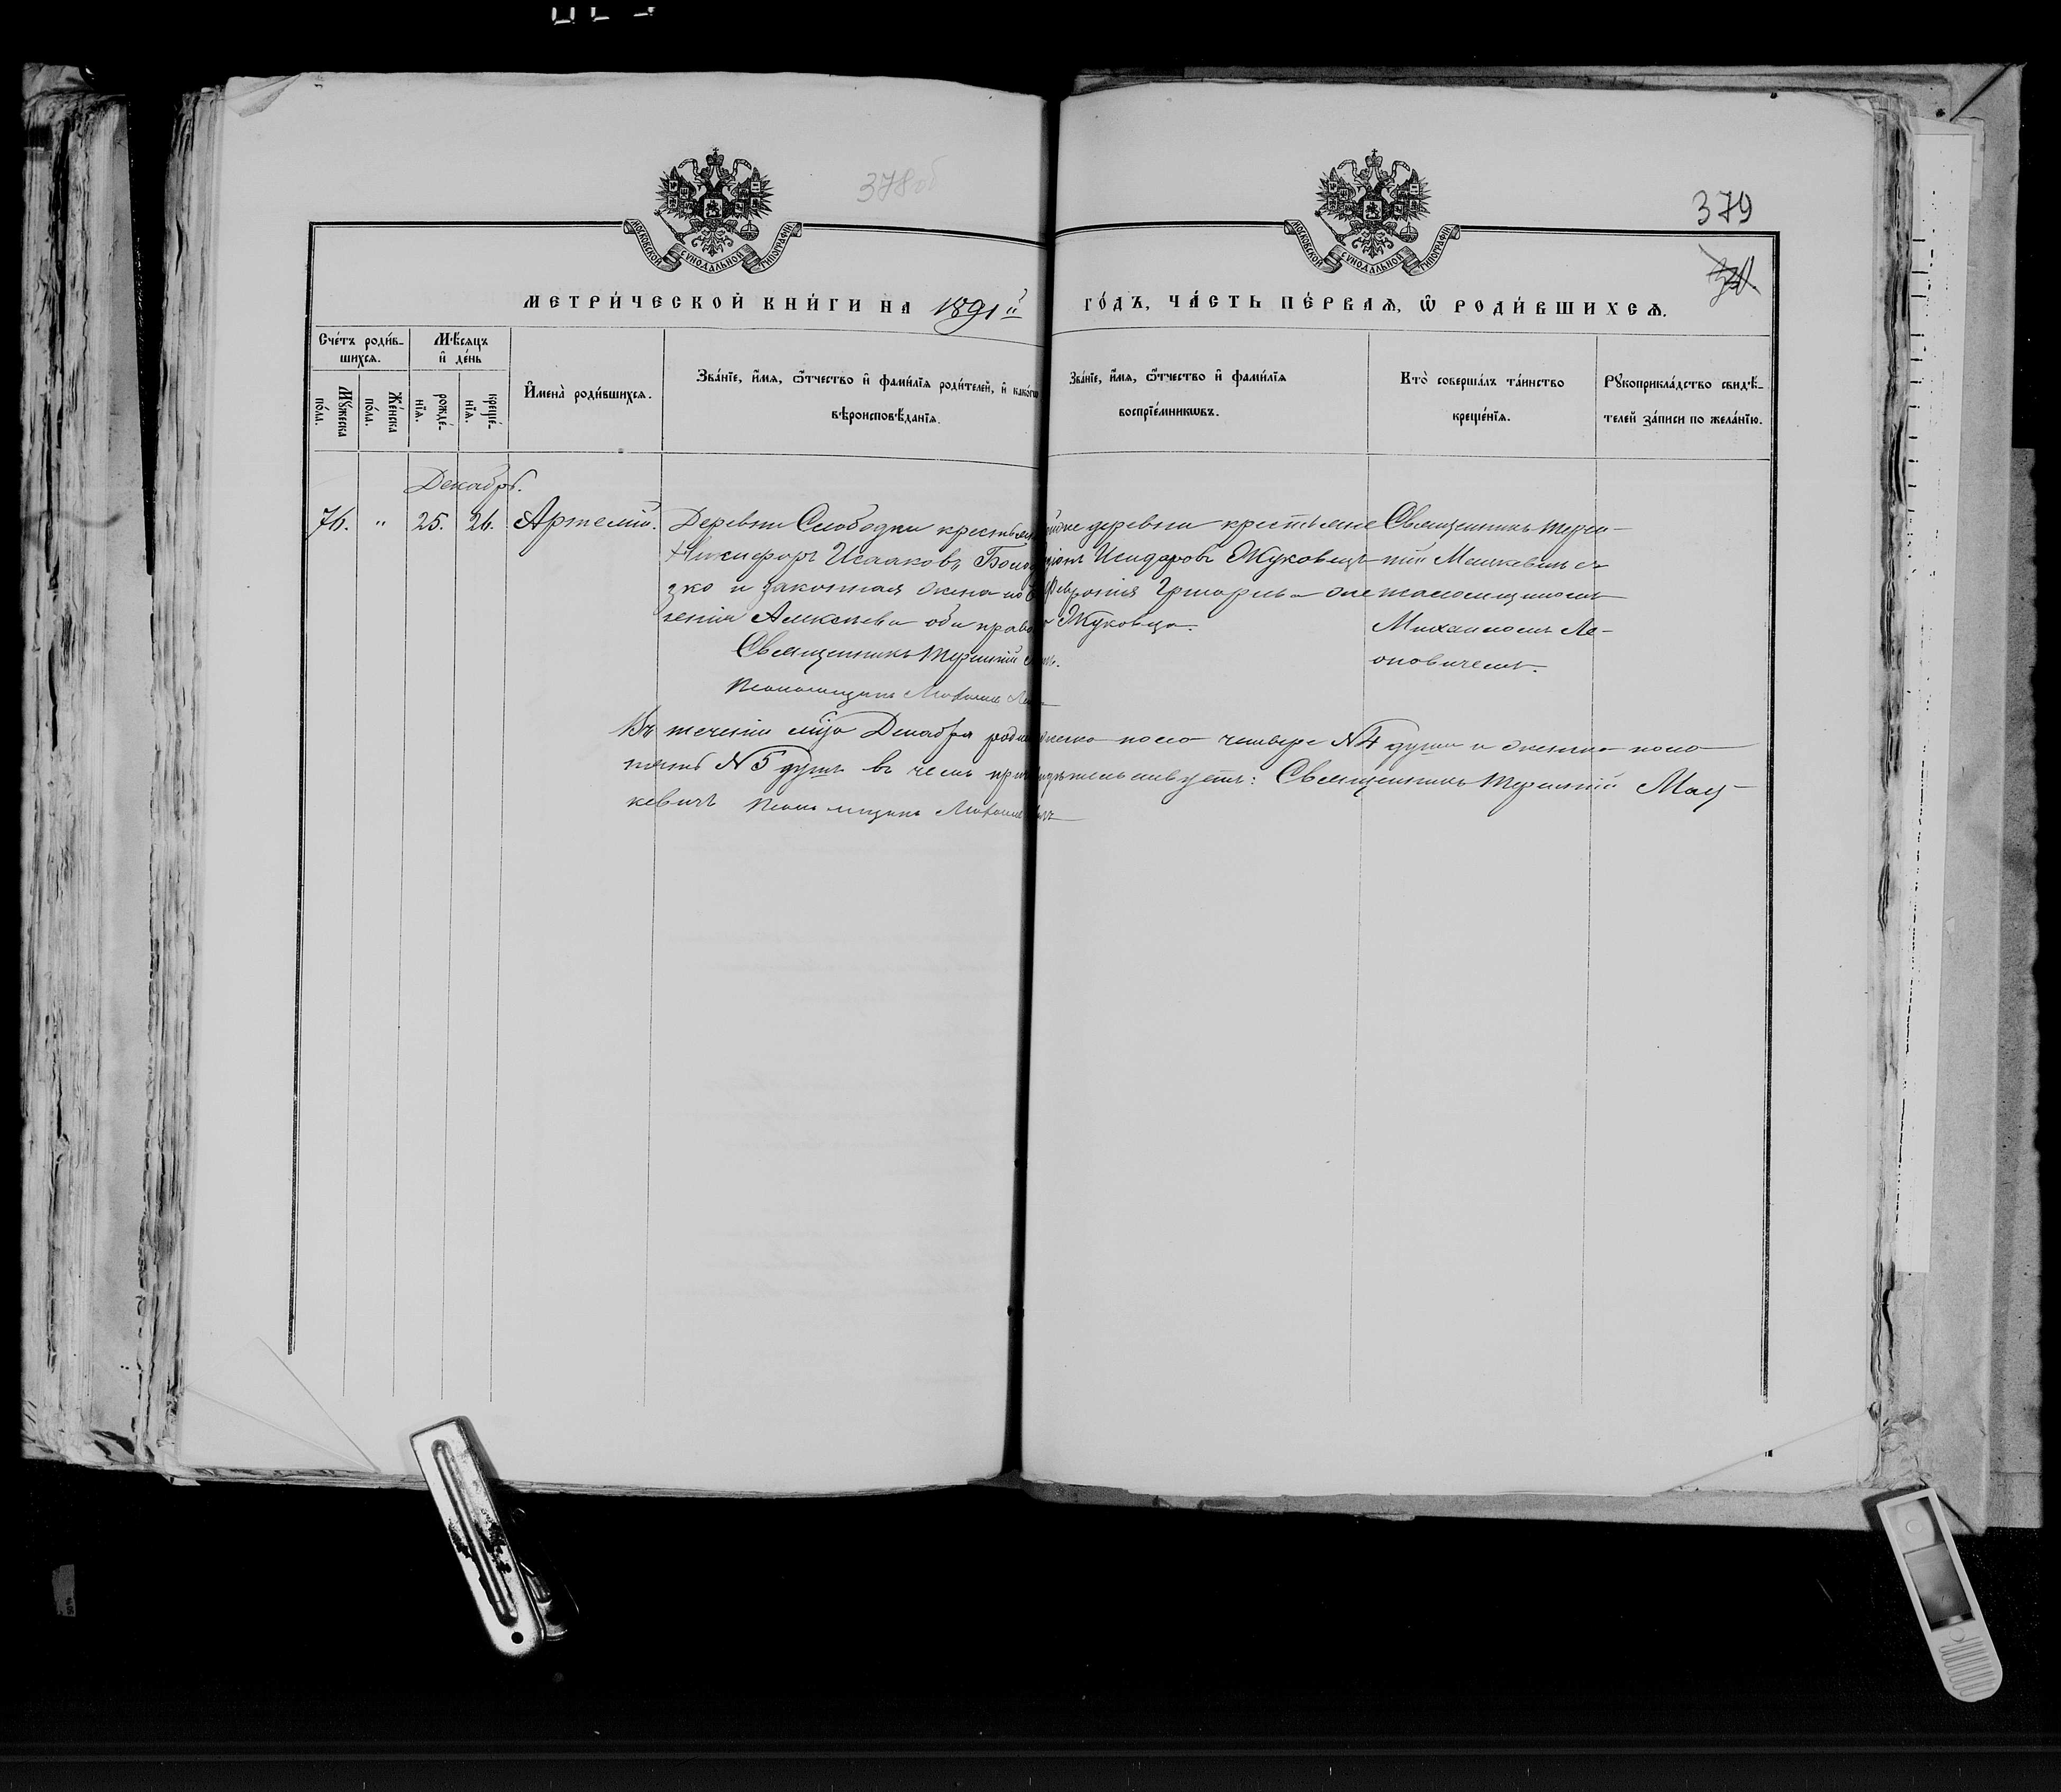 378об
379
МОСКОВСКОЙ СУНОДАЛЬНОЙ ТИПОГРАФІИ
МОСКОВСКОЙ СУНОДАЛЬНОЙ ТИПОГРАФІИ
МЕТРИ́ЧЕСКОЙ КНИ́ГИ НА 1891й ГО́ДЪ, ЧА́СТЬ ПЕ́РВАѦ, Ѿ РОДИ́ВШИХСѦ.
Сче́тъ роди́в-
шихсѧ.
Мꙋ́жеска
по́ла.
Же́нска
по́ла.
Мѣ́сѧцъ
и҆ де́нь
рожде́-
нїѧ.
креще́-
нїѧ.
И҆мена̀ роди́вшихсѧ.
Зва́нїе, и҆́мѧ, ѻ҆́тчество и҆ фами́лїѧ роди́телей, и҆ како́гѡ
вѣроисповѣ́данїѧ.
Зва́нїе, и҆́мѧ, ѻ҆́тчество и҆ фами́лїѧ
воспрїе́мникѡвъ.
Кто̀ соверша́лъ та́инство
креще́нїѧ.
Рꙋкоприкла́дство свидѣ́-
телей за́писи по жела́нїю.
Декабрь.
76. " 25. 26. Артемій.
Деревни Слободки крестьянинъ
Никифоръ Исааковъ
зко и законная жена его
Алексѣева оба право
Священникъ Терентій
Псаломщикъ Михаилъ
деревни крестьяне
Исидоровъ Жуковецъ
Февронія Григорьева
Жуковца.
Священникъ Терен-
тій Мацкевичъ съ
псаломщикомъ
Михаиломъ Ле-
оновичемъ.
Въ теченіи мца Декабря пола четыре №4 души и женска пола
пять №5 душъ въ чемъ свидѣтельствуетъ: Священникъ Терентій Мац-
кевичъ Псаломщикъ Михаилъ